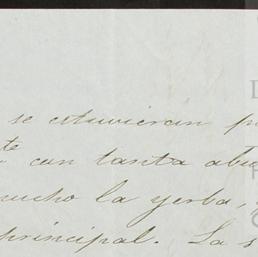 se estuvieran
te con tanta
mucho la yerba,
principal. La s